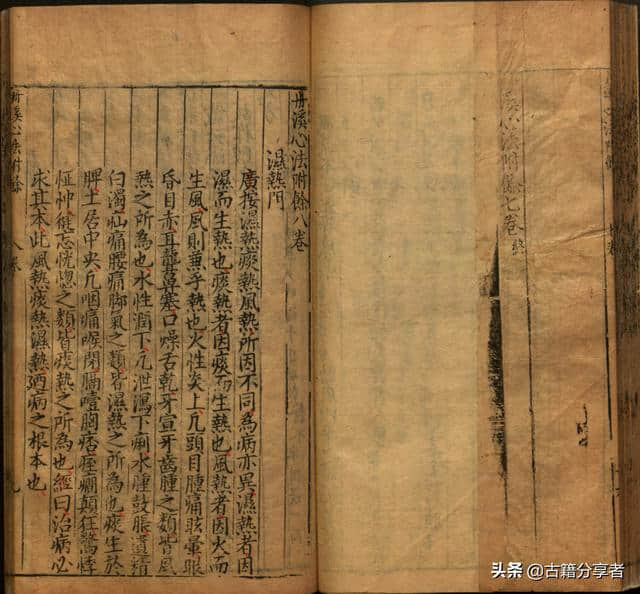 丹溪心法附餘七卷 終
丹溪心法附餘八卷
濕熱門
廣按濕熱痰熱風熱所因不同為病亦異濕熱者因
濕而生熱也痰熱者因痰而生熱也風熱者因火而
生風風則兼乎熱也火性炎上凡頭目腫痛眩暈眼
昏目赤耳聾鼻塞口燥舌乾牙宣牙齒腫之類皆風
熱之所為也水性潤下凡泄瀉下痢水腫鼓脹遺精
白濁疝痛腰痛脚氣之類皆濕熱之所為也痰生於
脾土居中央凡咽痛喉閉膈噎胸痞痓癇顛狂驚悸
怔忡健忘恍惚之類皆痰熱之所為也經曰治病必
求其本此風熱痰熱濕熱廼病之根本也
心法附餘
八卷
九
头条 @古籍分享者